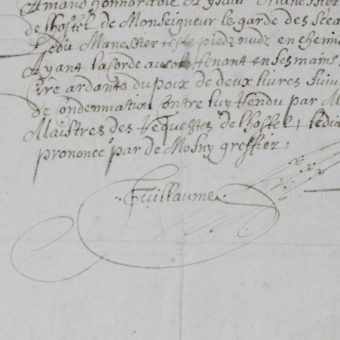 Amand honnorable A Isaac Manessier
de l'hostel de Monseigneur le garde des Scea
Ledit Manessier teste pieds nuds en chemi
Ayant la corde au col tenant en ses mains
Cire ardante du poix de deux livres suiv
de condemnation contre luy rendu par M
Maistres des requestes de l'hostel, ledi
prononcé par de Mosny greffier,
Guillaume